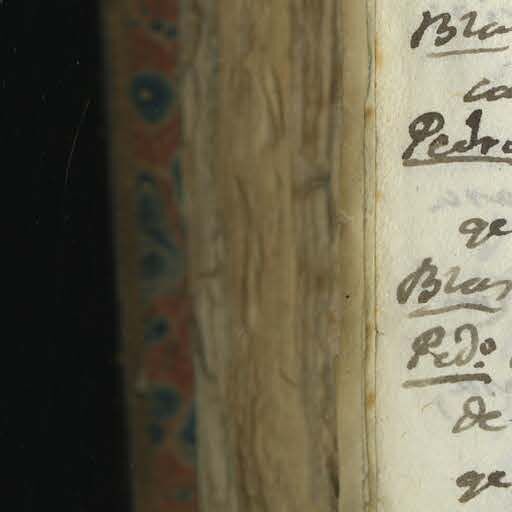 Bla
ca
Pedro
ge
Blas
Pedo.
de
ge